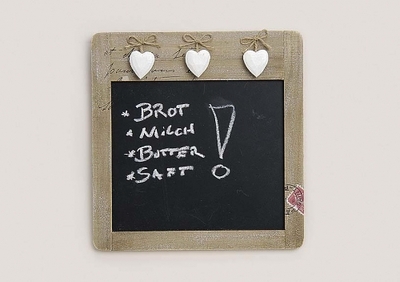 * BROT
* MILCH
* BUTTER
* SAFT
!